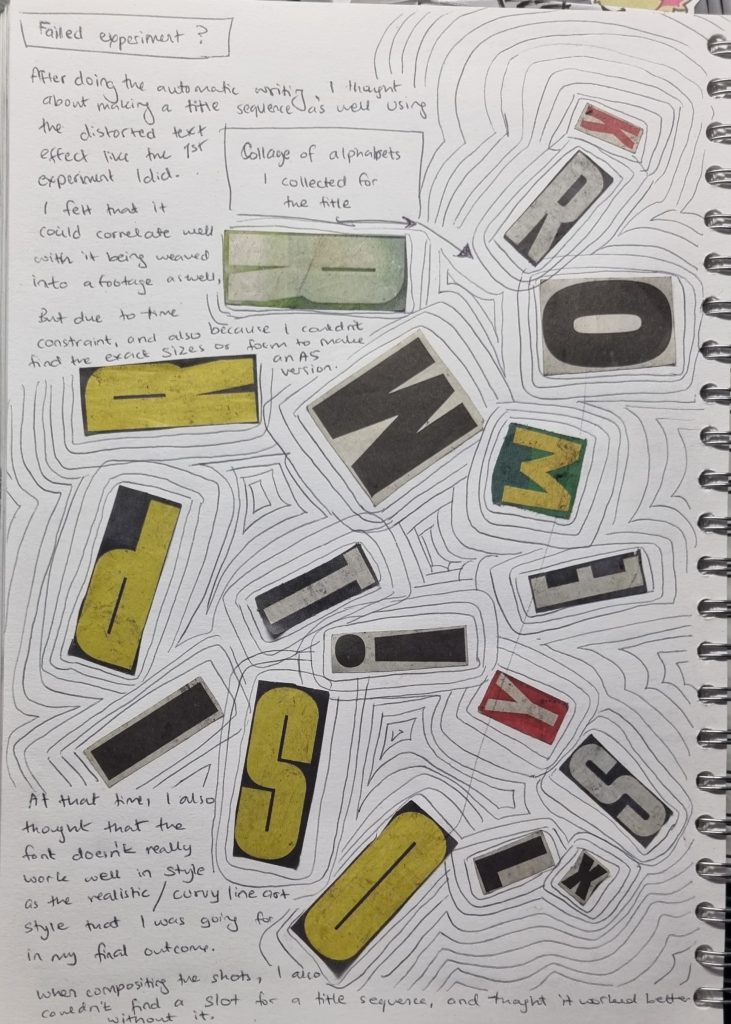 Failed experiment ?
After doing the automatic writing, I thought
about making a title sequence as well using
the distorted text
effect like the 1st
experiment I did.
Collage of alphabets
I collected for
the title
I felt that it
could correlate well
with it being weaved
into a footage as well,
But due to time
constraint, and also because I couldn't
find the exact sizes or form to make
an A5
version.
K
R
O
R
R
W
M
P
T
E
!
I
Y
S
S
O
L
K
At that time, I also
thought that the
font doesn't really
work well in style
as the realistic / curvy line art
style that I was going for
in my final outcome.
When compositing the shots, I also
couldn't find a slot for a title sequence, and thaght it worked better
without it.